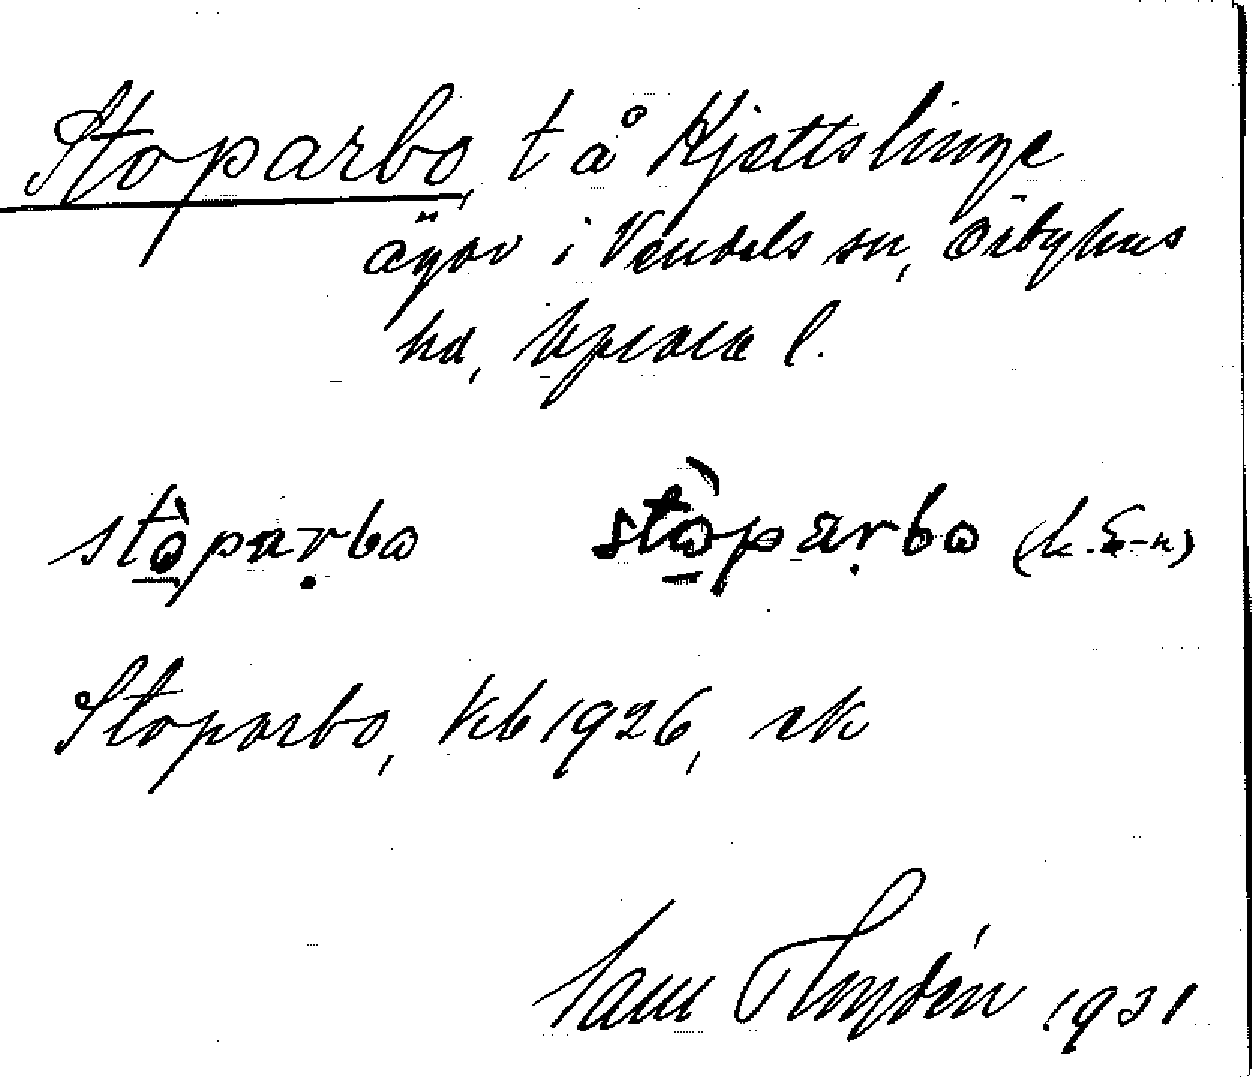 Stoparbo, t å Kjettslinge
ägor i Vendels sn, Örbyhus
hd, Uppsala l.
stò̱parbo stò̱pạrbo (k. )
Stoparbo, kb 1926, rk
Sam Flodén 1931